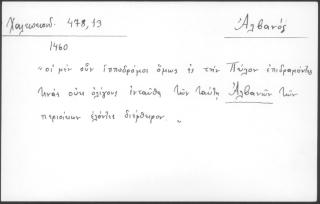 Χαλκοκονδ. 478,13
Ἀλβανός
1460
"οἱ μὲν οὖν ἱπποδρόμοι ὅμως ἐς τὴν Πύλον ἐπιδραμόντες
τινάς οὐκ ὀλίγους ἐνταῦθα τῶν ταύτῃ Ἀλβανῶν τῶν
περιοίκων ἑλόντες διέφθειρον "